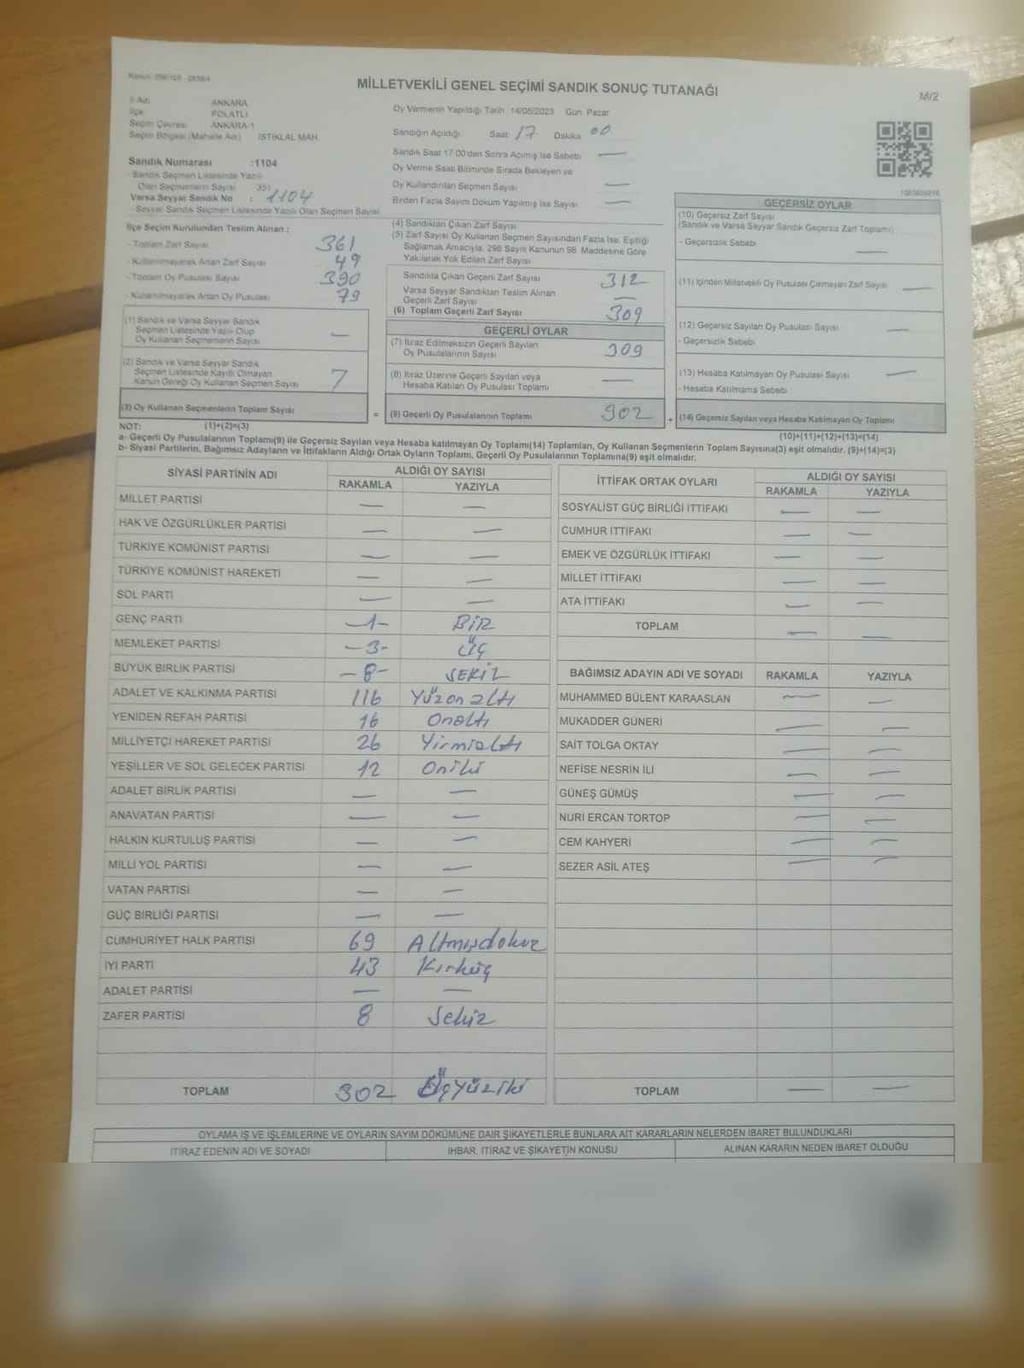 MİLLETVEKİLİ GENEL SEÇİMİ SANDIK SONUÇ TUTANAĞI
M/2
İl Adı : ANKARA
İlçe : POLATLI
Seçim Çevresi : ANKARA-1
Seçim Bölgesi (Mahalle Adı) : İSTİKLAL MAH.
Oy Vermenin Yapıldığı Tarih : 14/05/2023 Gün : Pazar
Sandığın Açıldığı Saat 17 Dakika 00
Sandık Saat 17:00'den Sonra Açılmış İse Sebebi —
Oy Verme Saati Bitiminde Sırada Bekleyen ve
Oy Kullandırılan Seçmen Sayısı —
Birden Fazla Sayım Döküm Yapılmış İse Sayısı —
Sandık Numarası :1104
- Sandık Seçmen Listesinde Yazılı
Olan Seçmenlerin Sayısı : 351
Varsa Seyyar Sandık No : 1104
- Seyyar Sandık Seçmen Listesinde Yazılı Olan Seçmen Sayısı
İlçe Seçim Kurulundan Teslim Alınan :
- Toplam Zarf Sayısı 361
- Kullanılmayarak Artan Zarf Sayısı 49
- Toplam Oy Pusulası Sayısı 390
- Kullanılmayarak Artan Oy Pusulası 79
(1) Sandık ve Varsa Seyyar Sandık
Seçmen Listesinde Yazılı Olup
Oy Kullanan Seçmenlerin Sayısı —
(2) Sandık ve Varsa Seyyar Sandık
Seçmen Listesinde Kayıtlı Olmayan
Kanun Gereği Oy Kullanan Seçmen Sayısı 7
(3) Oy Kullanan Seçmenlerin Toplam Sayısı =
(1)+(2)=(3)
(4) Sandıktan Çıkan Zarf Sayısı
(5) Zarf Sayısı Oy Kullanan Seçmen Sayısından Fazla İse, Eşitliği
Sağlamak Amacıyla, 298 Sayılı Kanunun 98. Maddesine Göre
Yakılarak Yok Edilen Zarf Sayısı
Sandıkta Çıkan Geçerli Zarf Sayısı 312
Varsa Seyyar Sandıktan Teslim Alınan
Geçerli Zarf Sayısı —
(6) Toplam Geçerli Zarf Sayısı 309
GEÇERLİ OYLAR
(7) İtiraz Edilmeksizin Geçerli Sayılan
Oy Pusulalarının Sayısı 309
(8) İtiraz Üzerine Geçerli Sayılan veya
Hesaba Katılan Oy Pusulası Toplamı —
(9) Geçerli Oy Pusulalarının Toplamı 302 +
GEÇERSİZ OYLAR
(10) Geçersiz Zarf Sayısı
(Sandık ve Varsa Seyyar Sandık Geçersiz Zarf Toplamı)
- Geçersizlik Sebebi —
(11) İçinden Milletvekili Oy Pusulası Çıkmayan Zarf Sayısı —
(12) Geçersiz Sayılan Oy Pusulası Sayısı —
- Geçersizlik Sebebi
(13) Hesaba Katılmayan Oy Pusulası Sayısı —
- Hesaba Katılmama Sebebi
(14) Geçersiz Sayılan veya Hesaba Katılmayan Oy Toplamı
(10)+(11)+(12)+(13)=(14)
NOT:
a- Geçerli Oy Pusulalarının Toplamı(9) ile Geçersiz Sayılan veya Hesaba katılmayan Oy Toplamı(14) Toplamları, Oy Kullanan Seçmenlerin Toplam Sayısına(3) eşit olmalıdır. (9)+(14)=(3)
b- Siyasi Partilerin, Bağımsız Adayların ve İttifakların Aldığı Ortak Oyların Toplamı, Geçerli Oy Pusulalarının Toplamına(9) eşit olmalıdır.
SİYASİ PARTİNİN ADI ALDIĞI OY SAYISI
RAKAMLA YAZIYLA
MİLLET PARTİSİ — —
HAK VE ÖZGÜRLÜKLER PARTİSİ — —
TÜRKİYE KOMÜNİST PARTİSİ — —
TÜRKİYE KOMÜNİST HAREKETİ — —
SOL PARTİ — —
GENÇ PARTİ -1- BİR
MEMLEKET PARTİSİ -3- ÜÇ
BÜYÜK BİRLİK PARTİSİ -8- SEKİZ
ADALET VE KALKINMA PARTİSİ 116 Yüzonaltı
YENİDEN REFAH PARTİSİ 16 Onaltı
MİLLİYETÇİ HAREKET PARTİSİ 26 Yirmialtı
YEŞİLLER VE SOL GELECEK PARTİSİ 12 Oniki
ADALET BİRLİK PARTİSİ — —
ANAVATAN PARTİSİ — —
HALKIN KURTULUŞ PARTİSİ — —
MİLLİ YOL PARTİSİ — —
VATAN PARTİSİ — —
GÜÇ BİRLİĞİ PARTİSİ — —
CUMHURİYET HALK PARTİSİ 69 Altmışdokuz
İYİ PARTİ 43 Kırküç
ADALET PARTİSİ — —
ZAFER PARTİSİ 8 Sekiz
TOPLAM 302 Üçyüziki
İTTİFAK ORTAK OYLARI ALDIĞI OY SAYISI
RAKAMLA YAZIYLA
SOSYALİST GÜÇ BİRLİĞİ İTTİFAKI — —
CUMHUR İTTİFAKI — —
EMEK VE ÖZGÜRLÜK İTTİFAKI — —
MİLLET İTTİFAKI — —
ATA İTTİFAKI — —
TOPLAM — —
BAĞIMSIZ ADAYIN ADI VE SOYADI RAKAMLA YAZIYLA
MUHAMMED BÜLENT KARAASLAN — —
MUKADDER GÜNERİ — —
SAİT TOLGA OKTAY — —
NEFİSE NESRİN İLİ — —
GÜNEŞ GÜMÜŞ — —
NURİ ERCAN TORTOP — —
CEM KAHYERİ — —
SEZER ASİL ATEŞ — —
TOPLAM — —
OYLAMA İŞ VE İŞLEMLERİNE VE OYLARIN SAYIM DÖKÜMÜNE DAİR ŞİKAYETLERLE BUNLARA AİT KARARLARIN NELERDEN İBARET BULUNDUKLARI
İTİRAZ EDENİN ADI VE SOYADI İHBAR, İTİRAZ VE ŞİKAYETİN KONUSU ALINAN KARARIN NEDEN İBARET OLDUĞU